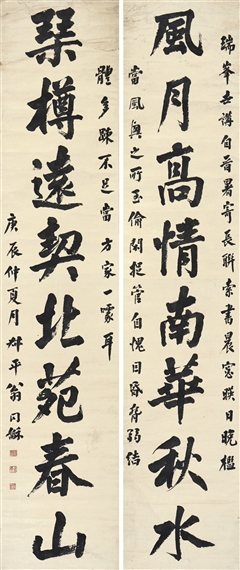 風月高情南華秋水
峯世講自晉署寄長聯索書晨窓暎日晚檻
當風興之所至偷閒捉管自愧目昏弱結
琹樽遠契北苑春山
體多踈不足當方家一噱耳
庚辰仲夏月叔平翁同龢